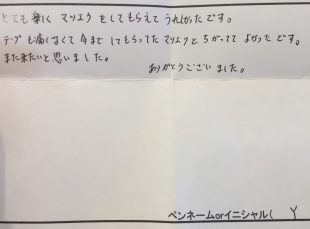 とても早く マツエク をしてもらえて うれしかった です。
テープ も痛くなくて 今まで してもらってた マツエクと ちがってて よかった です。
また来たいと思いました。
ありがとうございました。
ペンネームorイニシャル( Y